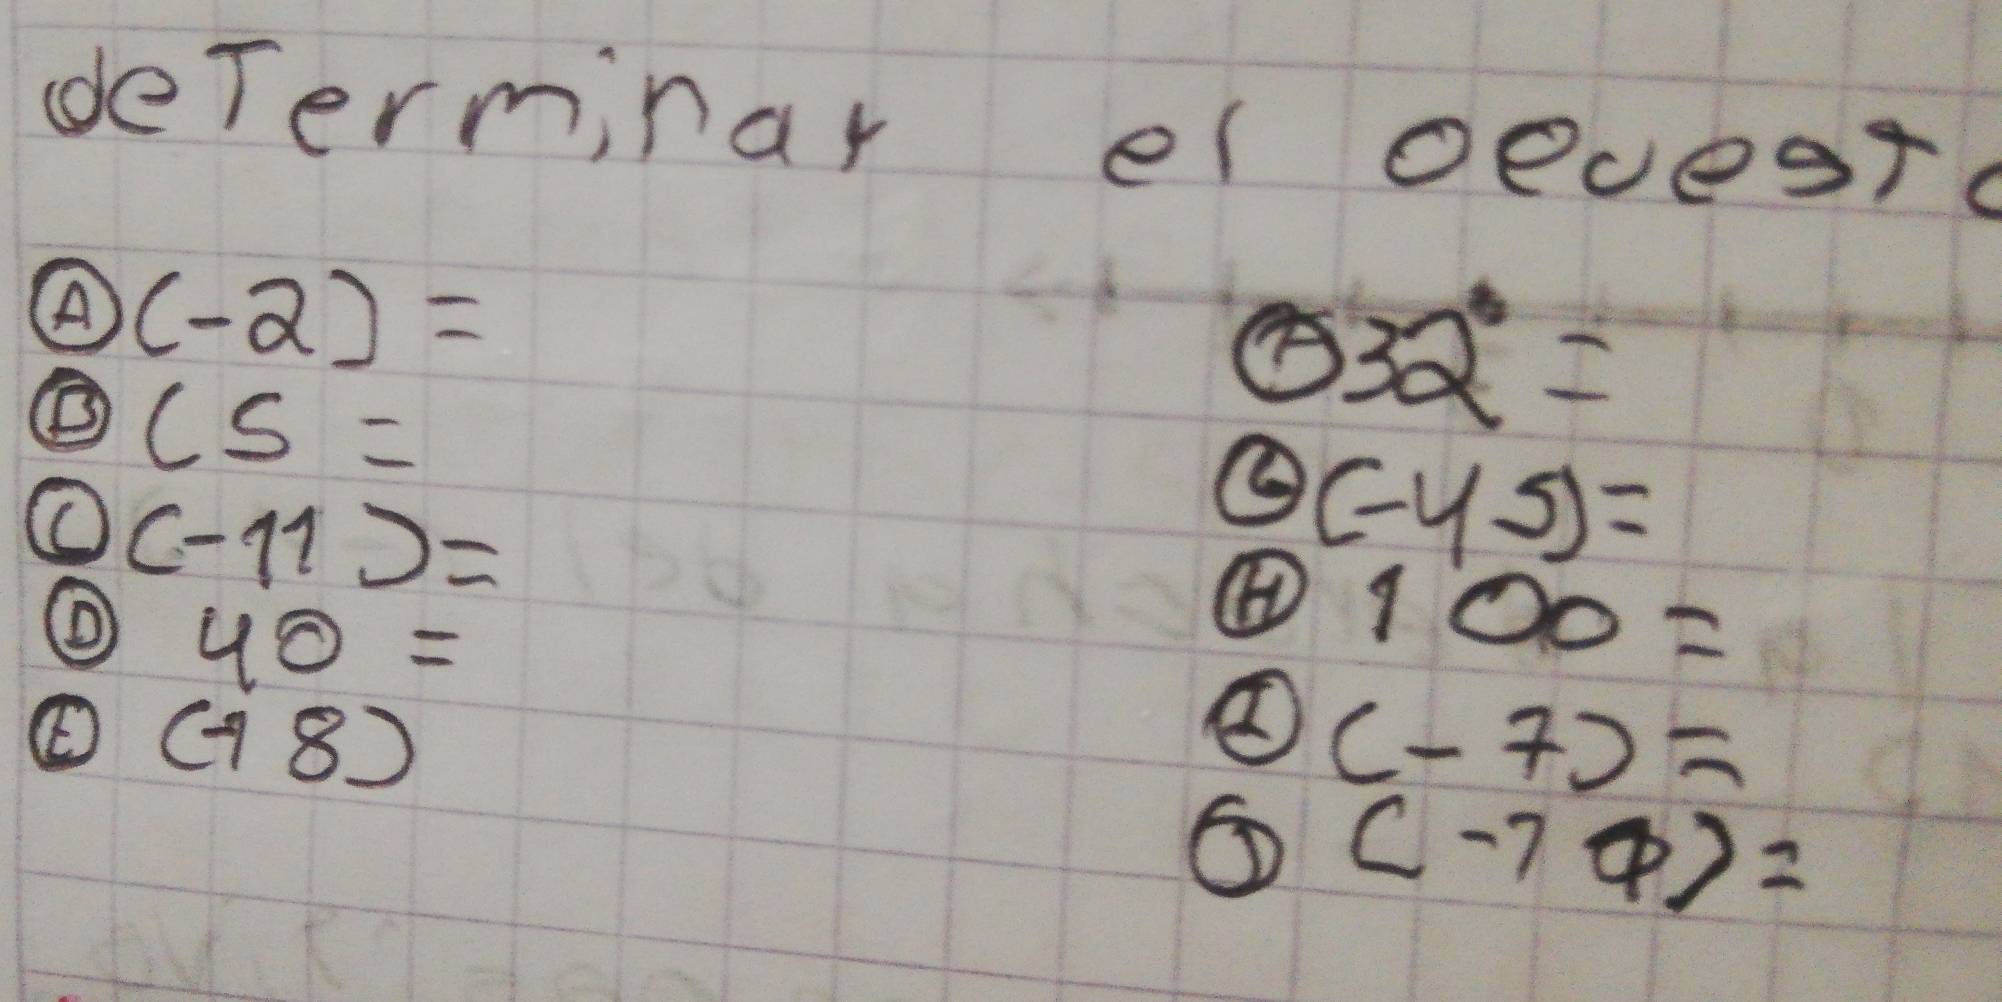 determinar el oeuesto
Ⓐ (-2) =
Ⓑ (5 =
Ⓒ (-11) =
Ⓓ 40 =
Ⓔ (-18)
Ⓕ 32 =
Ⓖ (-45) =
Ⓗ 100 =
Ⓘ (-7) =
Ⓙ